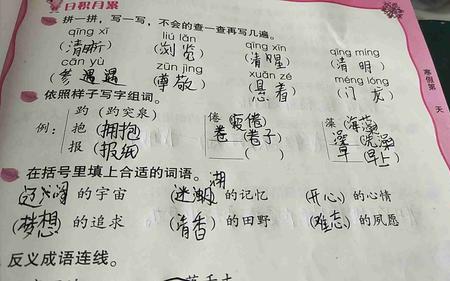 日积月累
拼一拼，写一写，不会的查一查再写几遍。
qīng xī liú lǎn qīng xīn qīng míng
(清晰) (浏览) (清醒) (清明)
cān yù zūn jìng xuǎn zé méng lóng
(参遇遇) (尊敬) (悬着) (门龙)
依照样子写字组词。
趵(趵突泉) 倦(疲倦) 藻(海藻)
例： 抱(拥抱) 卷(卷子) 澡(洗澡)
报(报纸) ( ) 早(早上)
在括号里填上合适的词语。
的宇宙 (迷湖) 的记忆 (开心)的心情
(梦想)的追求 (清香)的田野 (难忘)的夙愿
反义成语连线。
寒假第 天